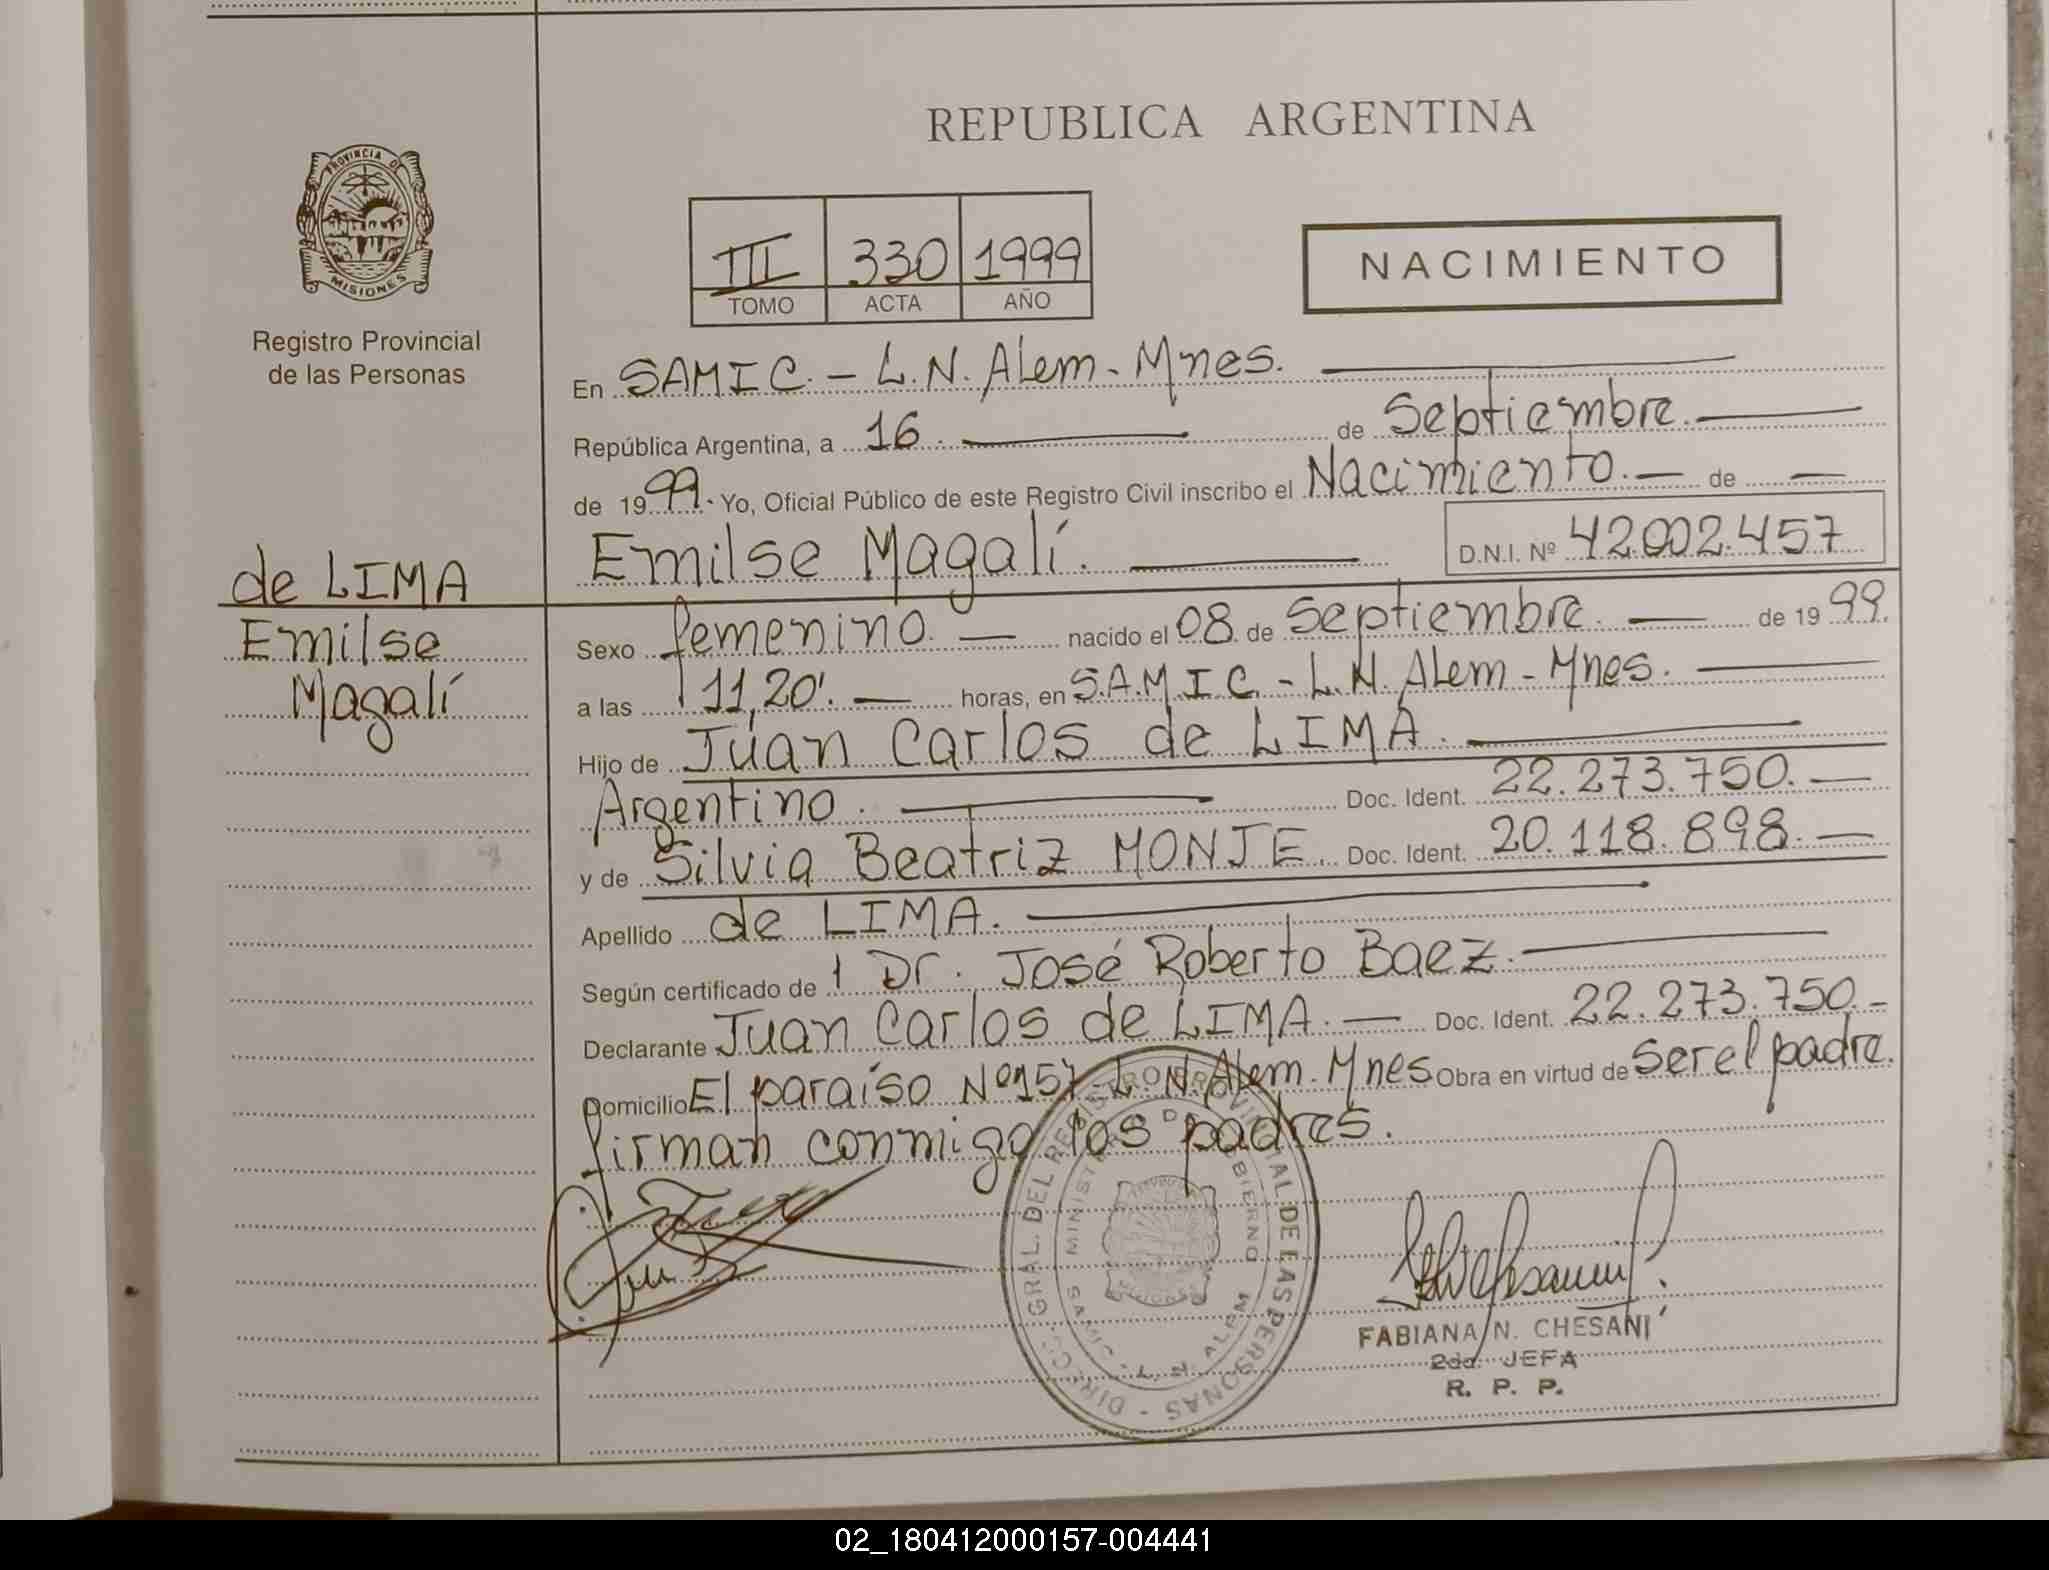 REPUBLICA ARGENTINA
PROVINCIA DE
MISIONES
Registro Provincial
de las Personas
III 330 1999
TOMO ACTA AÑO
NACIMIENTO
En SAMIC. - L.N. Alem - Mnes.
República Argentina, a 16. de Septiembre.
de 1999. Yo, Oficial Público de este Registro Civil inscribo el Nacimiento. de
Emilse Magalí. D.N.I. Nº 42.002.457
de LIMA
Emilse
Magalí
Sexo femenino. nacido el 08 de Septiembre. de 1999.
a las 11,20'. horas, en S.A.M.I.C. - L.N. Alem - Mnes.
Hijo de Juan Carlos de LIMA.
Argentino. Doc. Ident. 22.273.750.
y de Silvia Beatriz MONJE. Doc. Ident. 20.118.898.
Apellido de LIMA.
Según certificado de 1 Dr. José Roberto Baez.
Declarante Juan Carlos de LIMA. Doc. Ident. 22.273.750.
Domicilio El paraíso Nº 157 - L.N. Alem. Mnes Obra en virtud de ser el padre.
firman conmigo los padres.
DIREC. GRAL. DEL REGISTRO PROVINCIAL DE LAS PERSONAS -
MINISTERIO DE GOBIERNO
SAMIC - L. N. ALEM
FABIANA N. CHESANI
2da. JEFA
R. P. P.
02_180412000157-004441